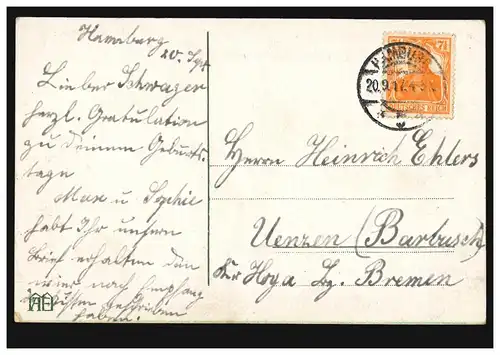 Hamburg
20. Sept
Lieber Schwager
herzl. Gratulation
zu deinem Geburts-
tage
Max u Sophie
habt Ihr unsern
Brief erhalten den
wir nach Empfang
geschrieben
haben.
HAMBURG
20.9.17.
7½
DEUTSCHES REICH
Herrn Heinrich Ehlers
Uenzen (Barbusch)
Kr Hoya Bz. Bremen
AEH